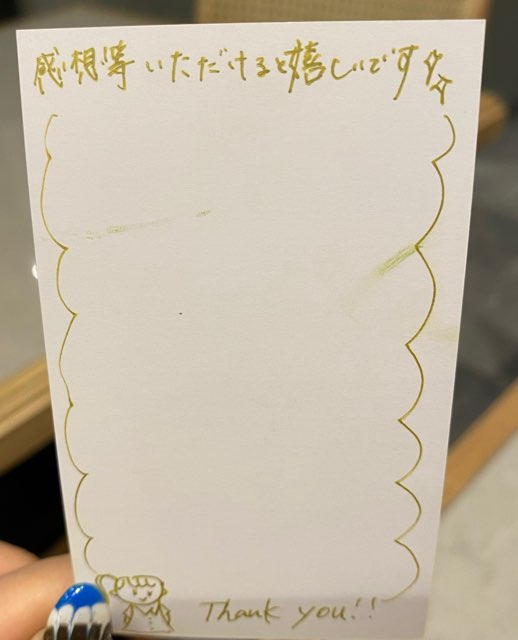 感想等いただけると嬉しいです☆☆
Thank you!!